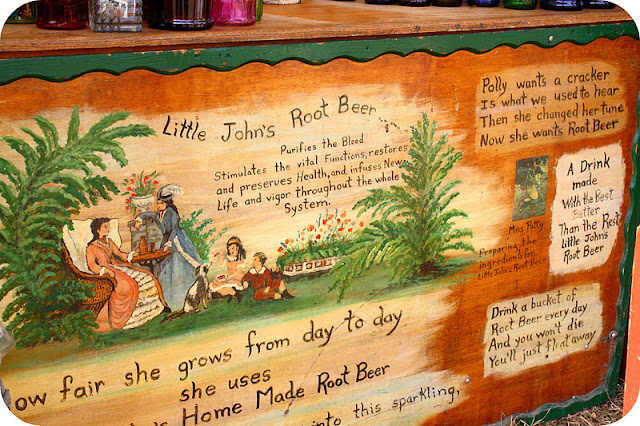 Little John's Root Beer
Purifies the Blood
Stimulates the vital Functions, restores
and preserves Health, and infuses New
Life and vigor throughout the whole
System.
Polly wants a cracker
Is what we used to hear
Then she changed her tune
Now she wants Root Beer
A Drink
made
With the Best
Better
Than the Rest
Little John's
Root Beer
Miss Patty
Preparing the
ingredients for
Little John's Root Beer
Drink a bucket of
Root Beer every day
And you won't die
You'll just float away
ow fair she grows from day to day
she uses
Home Made Root Beer
into this sparkling,